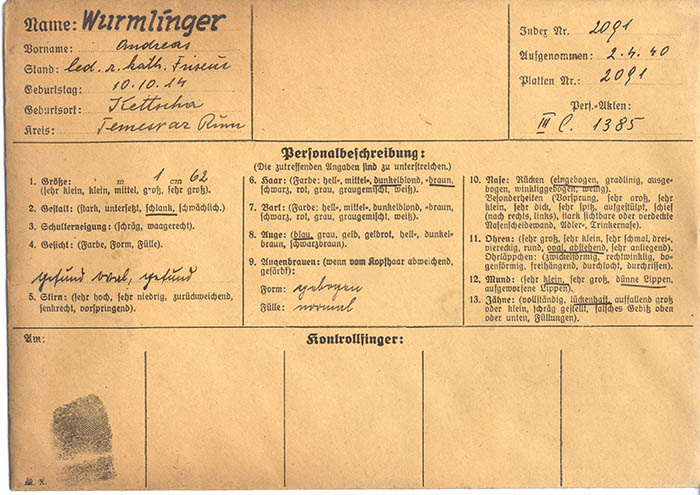 Name: Wurmlinger
Vorname: Andreas
Stand: led. r. kath. Friseur
Geburtstag: 10.10.14
Geburtsort: Kettscha
Kreis: Temesvar Rum
Index Nr. 2091
Aufgenommen: 2.4.40
Platten Nr.: 2091
Pers.-Akten:
III C. 1385
Personalbeschreibung:
(Die zutreffenden Angaben sind zu unterstreichen.)
1. Größe: m 1 cm 62
(sehr klein, klein, mittel, groß, sehr groß).
2. Gestalt: (stark, untersetzt, schlank, schwächlich.)
3. Schulterneigung: (schräg, waagerecht).
4. Gesicht: (Farbe, Form, Fülle).
gesund oval, gesund
5. Stirn: (sehr hoch, sehr niedrig, zurückweichend,
senkrecht, vorspringend).
6. Haar: (Farbe: hell-, mittel-, dunkelblond, -braun,
schwarz, rot, grau, graugemischt, weiß).
7. Bart: (Farbe: hell-, mittel-, dunkelblond, -braun,
schwarz, rot, grau, graugemischt, weiß).
8. Auge: (blau, grau, gelb, gelbrot, hell-, dunkel-
braun, schwarzbraun).
9. Augenbrauen: (wenn vom Kopfhaar abweichend,
gefärbt):
Form: gebogen
Fülle: normal
10. Nase: Rücken (eingebogen, gradlinig, ausge-
bogen, winkliggebogen, wellig).
Besonderheiten (Vorsprung, sehr groß, sehr
klein, sehr dick, sehr spitz, aufgestülpt, schief
(nach rechts, links), stark sichtbare oder verdeckte
Nasenscheidewand, Adler-, Trinkernase).
11. Ohren: (sehr groß, sehr klein, sehr schmal, drei-
viereckig, rund, oval, abstehend, sehr anliegend).
Ohrläppchen: (zwickelförmig, rechtwinklig, bo-
genförmig, freihängend, durchlocht, durchrissen).
12. Mund: (sehr klein, sehr groß, dünne Lippen,
aufgeworfene Lippen).
13. Zähne: (vollständig, lückenhaft, auffallend groß
oder klein, schräg gestellt, falsches Gebiß oben
oder unten, Füllungen).
Am:
Kontrollfinger: